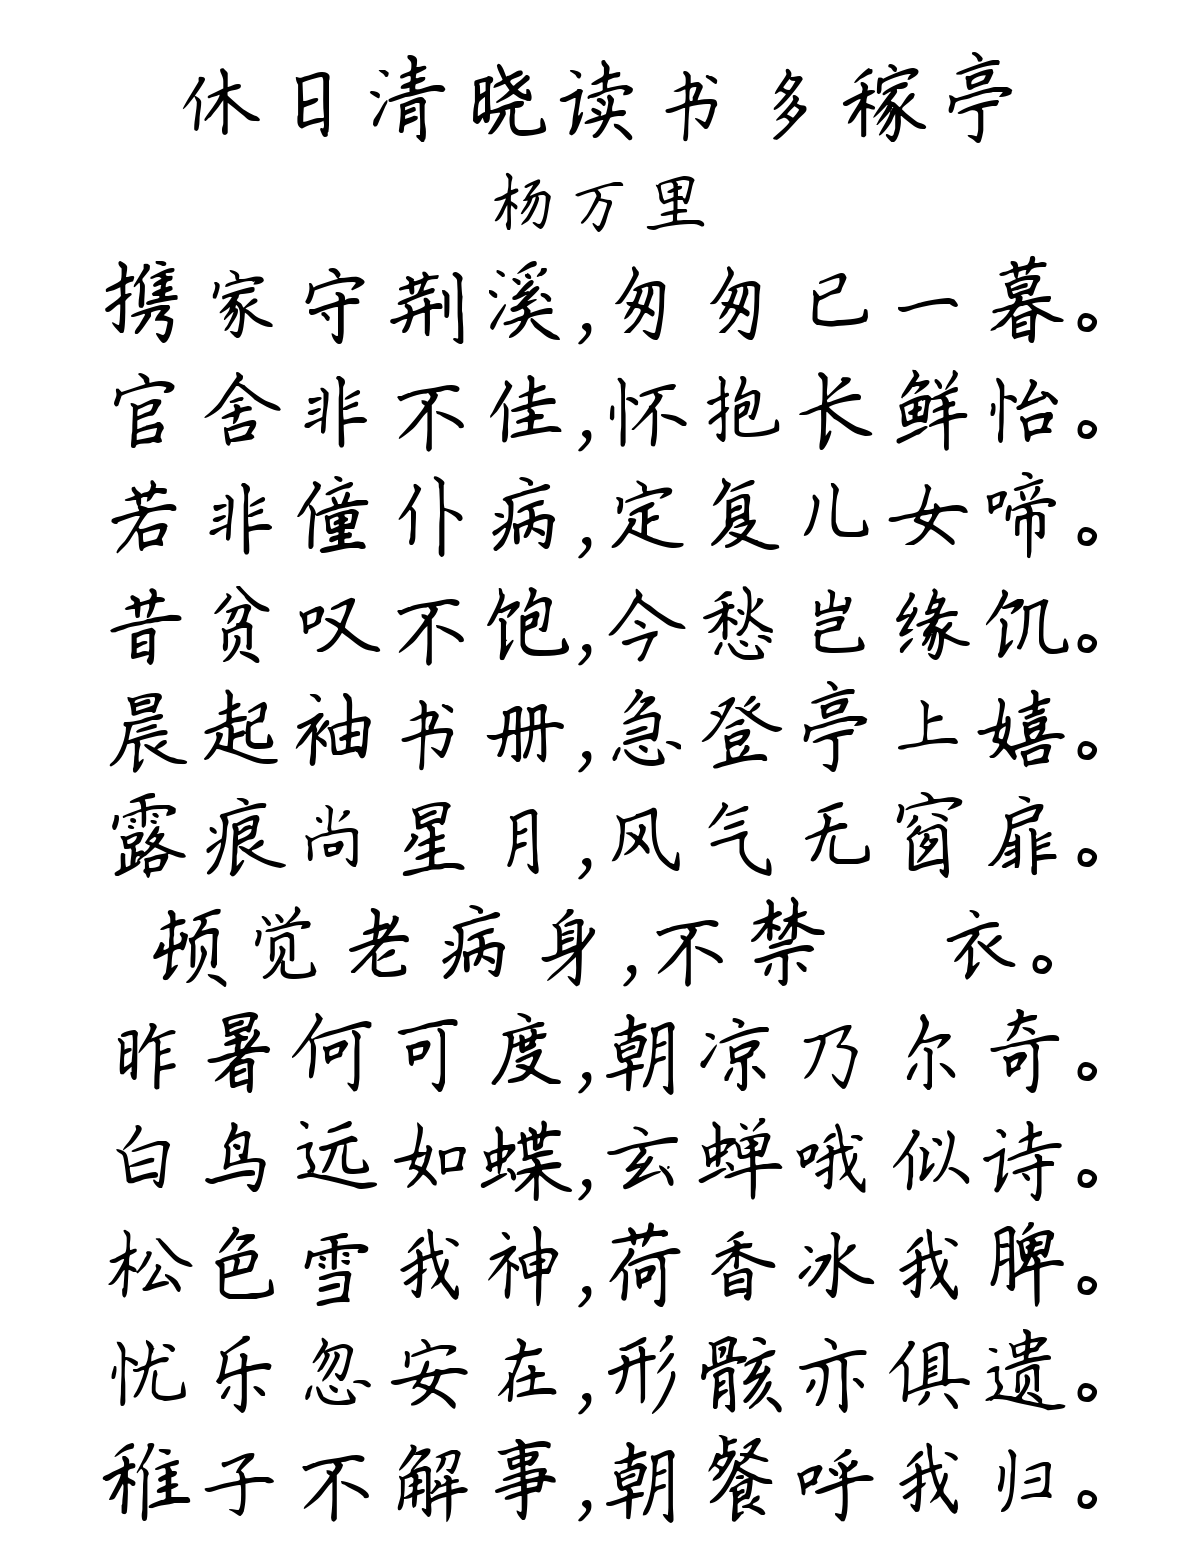 休日清晓读书多稼亭
杨万里
携家守荆溪,匆匆已一暮。
官舍非不佳,怀抱长鲜怡。
若非僮仆病,定复儿女啼。
昔贫叹不饱,今愁岂缘饥。
晨起袖书册,急登亭上嬉。
露痕尚星月,风气无窗扉。
顿觉老病身,不禁 衣。
昨暑何可度,朝凉乃尔奇。
白鸟远如蝶,玄蝉哦似诗。
松色雪我神,荷香冰我脾。
忧乐忽安在,形骸亦俱遗。
稚子不解事,朝餐呼我归。